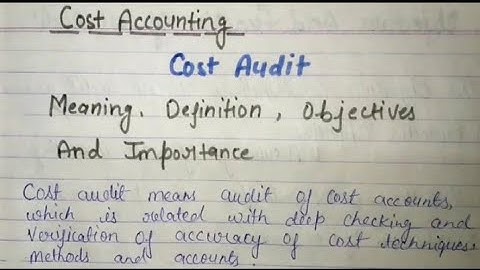 Cost Accounting
Cost Audit
Meaning, Definition, Objectives
And Importance
Cost audit means audit of cost accounts,
which is related with deep checking and
verification of accuracy of cost techniques,
methods and accounts.